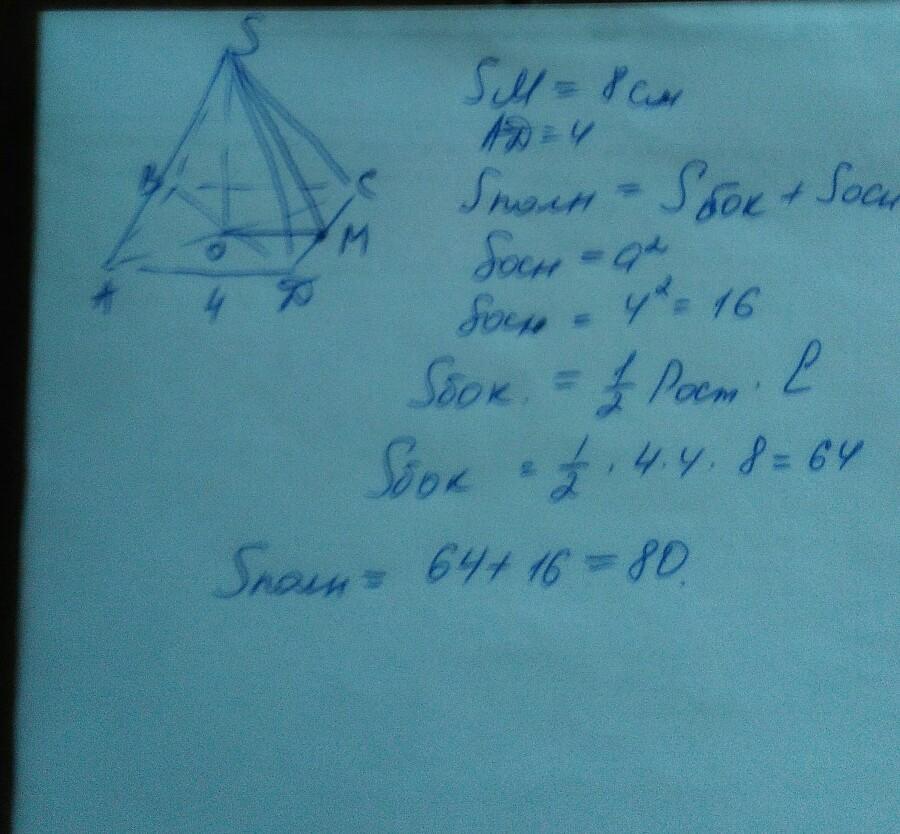 S
B
C
O
M
A
4
D
SM = 8 см
AD = 4
Sполн = Sбок + Sосн
Sосн = a²
Sосн = 4² = 16
Sбок. = 1/2 Pост · l
Sбок = 1/2 · 4 · 4 · 8 = 64
Sполн = 64 + 16 = 80.